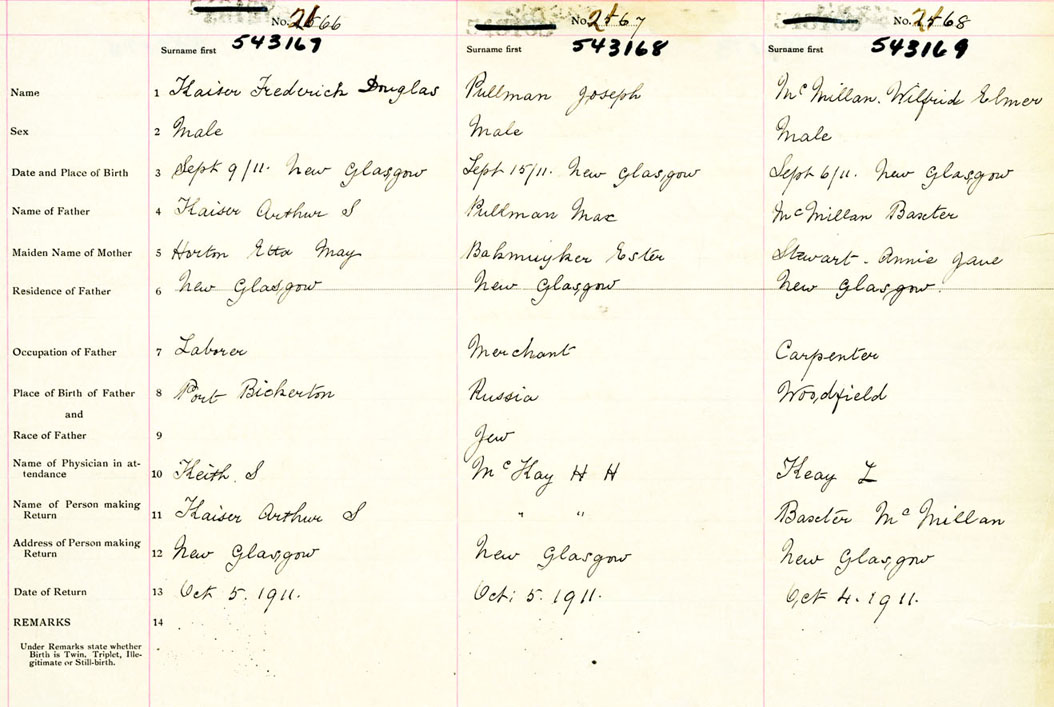 No. 2566 No. 2467 No. 2468
Surname first 543167 Surname first 543168 Surname first 543169
Name 1 Kaiser Frederick Douglas Pullman Joseph McMillan. Wilfrid Elmer
Sex 2 Male Male Male
Date and Place of Birth 3 Sept 9/11. New Glasgow Sept 15/11. New Glasgow Sept 6/11. New Glasgow
Name of Father 4 Kaiser Arthur S Pullman Max McMillan Baxter
Maiden Name of Mother 5 Horton Etta May Bakmuyker Ester Stewart - Annie Jane
Residence of Father 6 New Glasgow New Glasgow New Glasgow.
Occupation of Father 7 Laborer Merchant Carpenter
Place of Birth of Father 8 Port Bickerton Russia Woodfield
and
Race of Father 9 Jew
Name of Physician in at-
tendance 10 Keith. S McKay H H Keay L
Name of Person making
Return 11 Kaiser Arthur S " " Baxter McMillan
Address of Person making
Return 12 New Glasgow New Glasgow New Glasgow
Date of Return 13 Oct 5. 1911. Oct. 5. 1911. Oct 4. 1911.
REMARKS 14
Under Remarks state whether
Birth is Twin. Triplet, Ille-
gitimate or Still-birth.